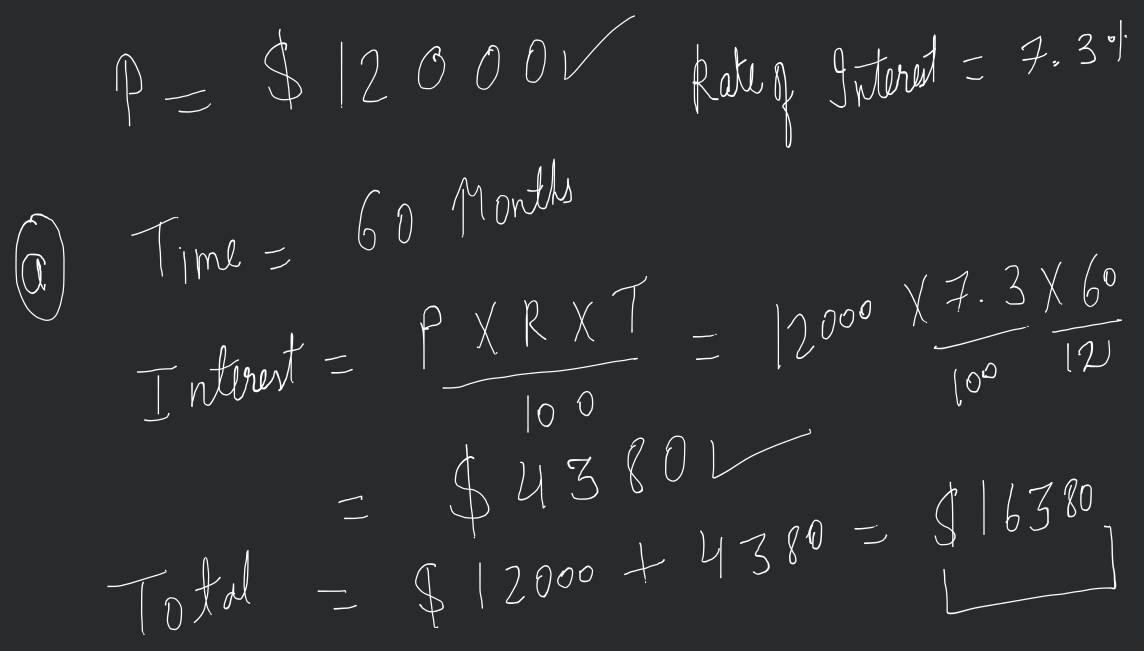 P = $12000✓ Rate of Interest = 7.3%
(a) Time = 60 Months
Interest = P X R X T / 100 = 12000 X 7.3 / 100 X 60 / 12
= $4380✓
Total = $12000 + 4380 = $16380